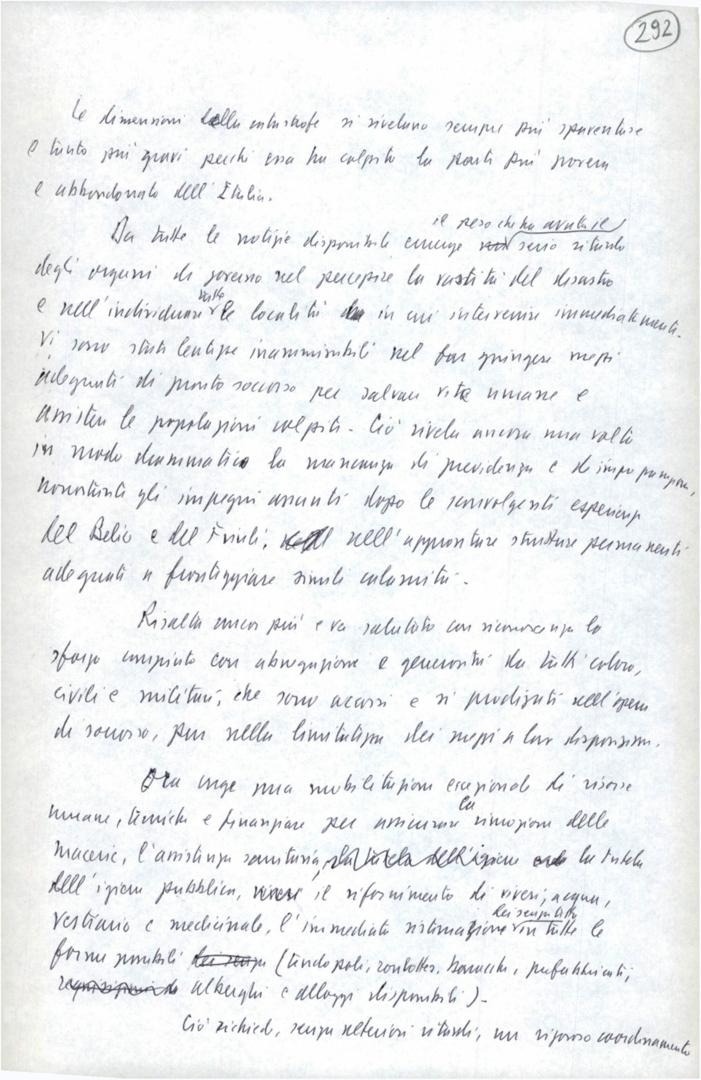 292
Le dimensioni della catastrofe si rivelano sempre più spaventose
e tanto più gravi perché essa ha colpito la parte più povera
e abbandonata dell'Italia.
il peso che ha avuto il
Da tutte le notizie disponibili emerge serio ritardo
degli organi di governo nel percepire la vastità del disastro
tutte
e nell'individuare le località in cui intervenire immediatamente.
Vi sono state lentezze inammissibili nel far giungere mezzi
adeguati di pronto soccorso per salvare vite umane e
assistere le popolazioni colpite. Ciò rivela ancora una volta
in modo drammatico la mancanza di previdenza e di
nonostante gli impegni assunti dopo le sconvolgenti esperienze
del Belice e del Friuli, nell'approntare strutture permanenti
adeguate a fronteggiare simili calamità.
Risalta ancor più e va salutato con riconoscenza lo
sforzo compiuto con abnegazione e generosità da tutti coloro,
civili e militari, che sono accorsi e si prodigati nell'opera
di soccorso, pur nella limitatezza dei mezzi a loro disposizione.
Ora urge una mobilitazione eccezionale di risorse
la
umane, tecniche e finanziarie per assicurare rimozione delle
macerie, l'assistenza sanitaria, la tutela dell'igiene la tutela
dell'igiene pubblica, il rifornimento di viveri, acqua,
dei senza tetto
vestiario e medicinale, l'immediata sistemazione in tutte le
forme possibili dei senza (tendopoli, roulottes, baracche, prefabbricati,
requisizione di alberghi e alloggi disponibili).
Ciò richiede, senza ulteriori ritardi, un rigoroso coordinamento